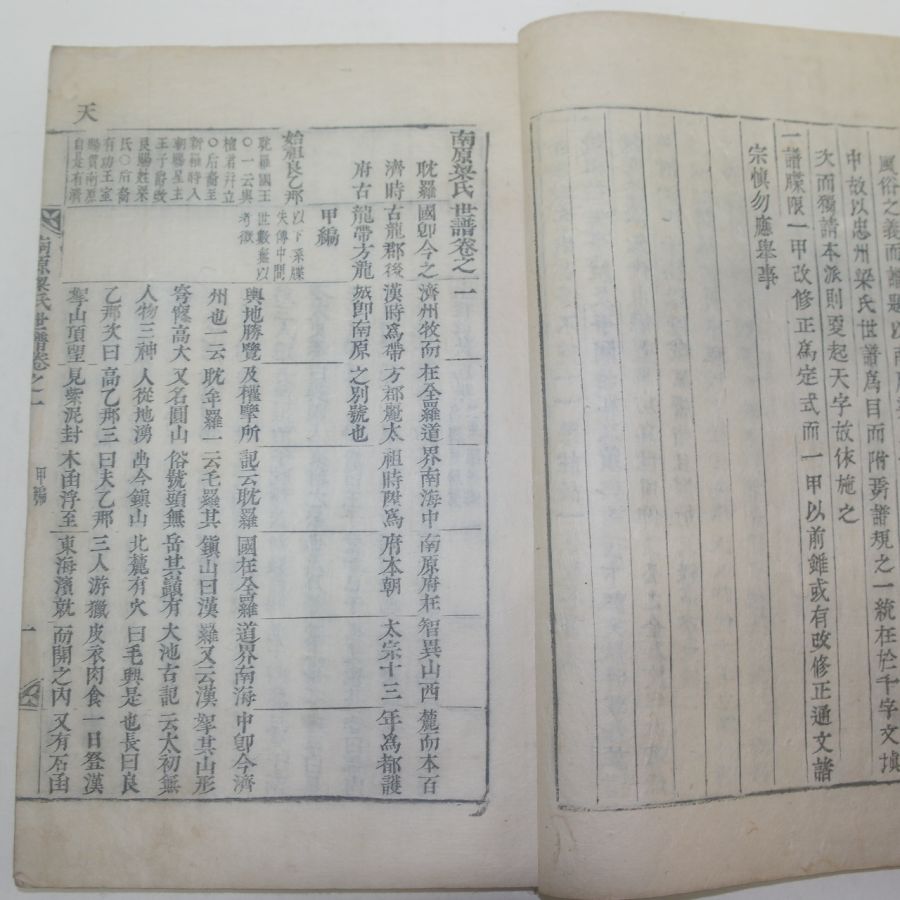 風俗之義而譜題以南原
中故以忠州梁氏世譜爲目而附舊譜規之一統在於千字文塡
次而獨請本派則更起天字故依施之
一譜牒限一甲改修正爲定式而一甲以前雖或有改修正通文諸
宗愼勿應擧事
南原梁氏世譜卷之一
耽羅國卽今之濟州牧而在全羅道界南海中南原府在智異山西麓而本百
濟時古龍郡後漢時爲帶方郡魏太祖時陞爲府本朝太宗十三年爲都護
府古龍帶方龍城卽南原之別號也
甲編
始祖良乙那
耽羅國王
○一云與
檀君幷立
○后裔至
新羅時入
朝賜星主
王子爵改
良賜姓梁
氏○后裔
有功王室
賜貫南原
自是有濟
以下系牒
失傳中間
世數難以
考徵
輿地勝覽及權擥所記云耽羅國在全羅道界南海中卽今濟
州也一云耽牟羅一云乇羅其鎭山曰漢羅又云漢拏其山形
穹窿高大又名圓山俗號頭無岳其巓有大池古記云太初無
人物三神人從地湧出今鎭山北麓有穴曰毛興是也長曰良
乙那次曰高乙那三曰夫乙那三人游獵皮衣肉食一日登漢
拏山頂望見紫泥封木函浮至東海濱就而開之內又有石函
天
南原梁氏世譜卷之一
甲編
一